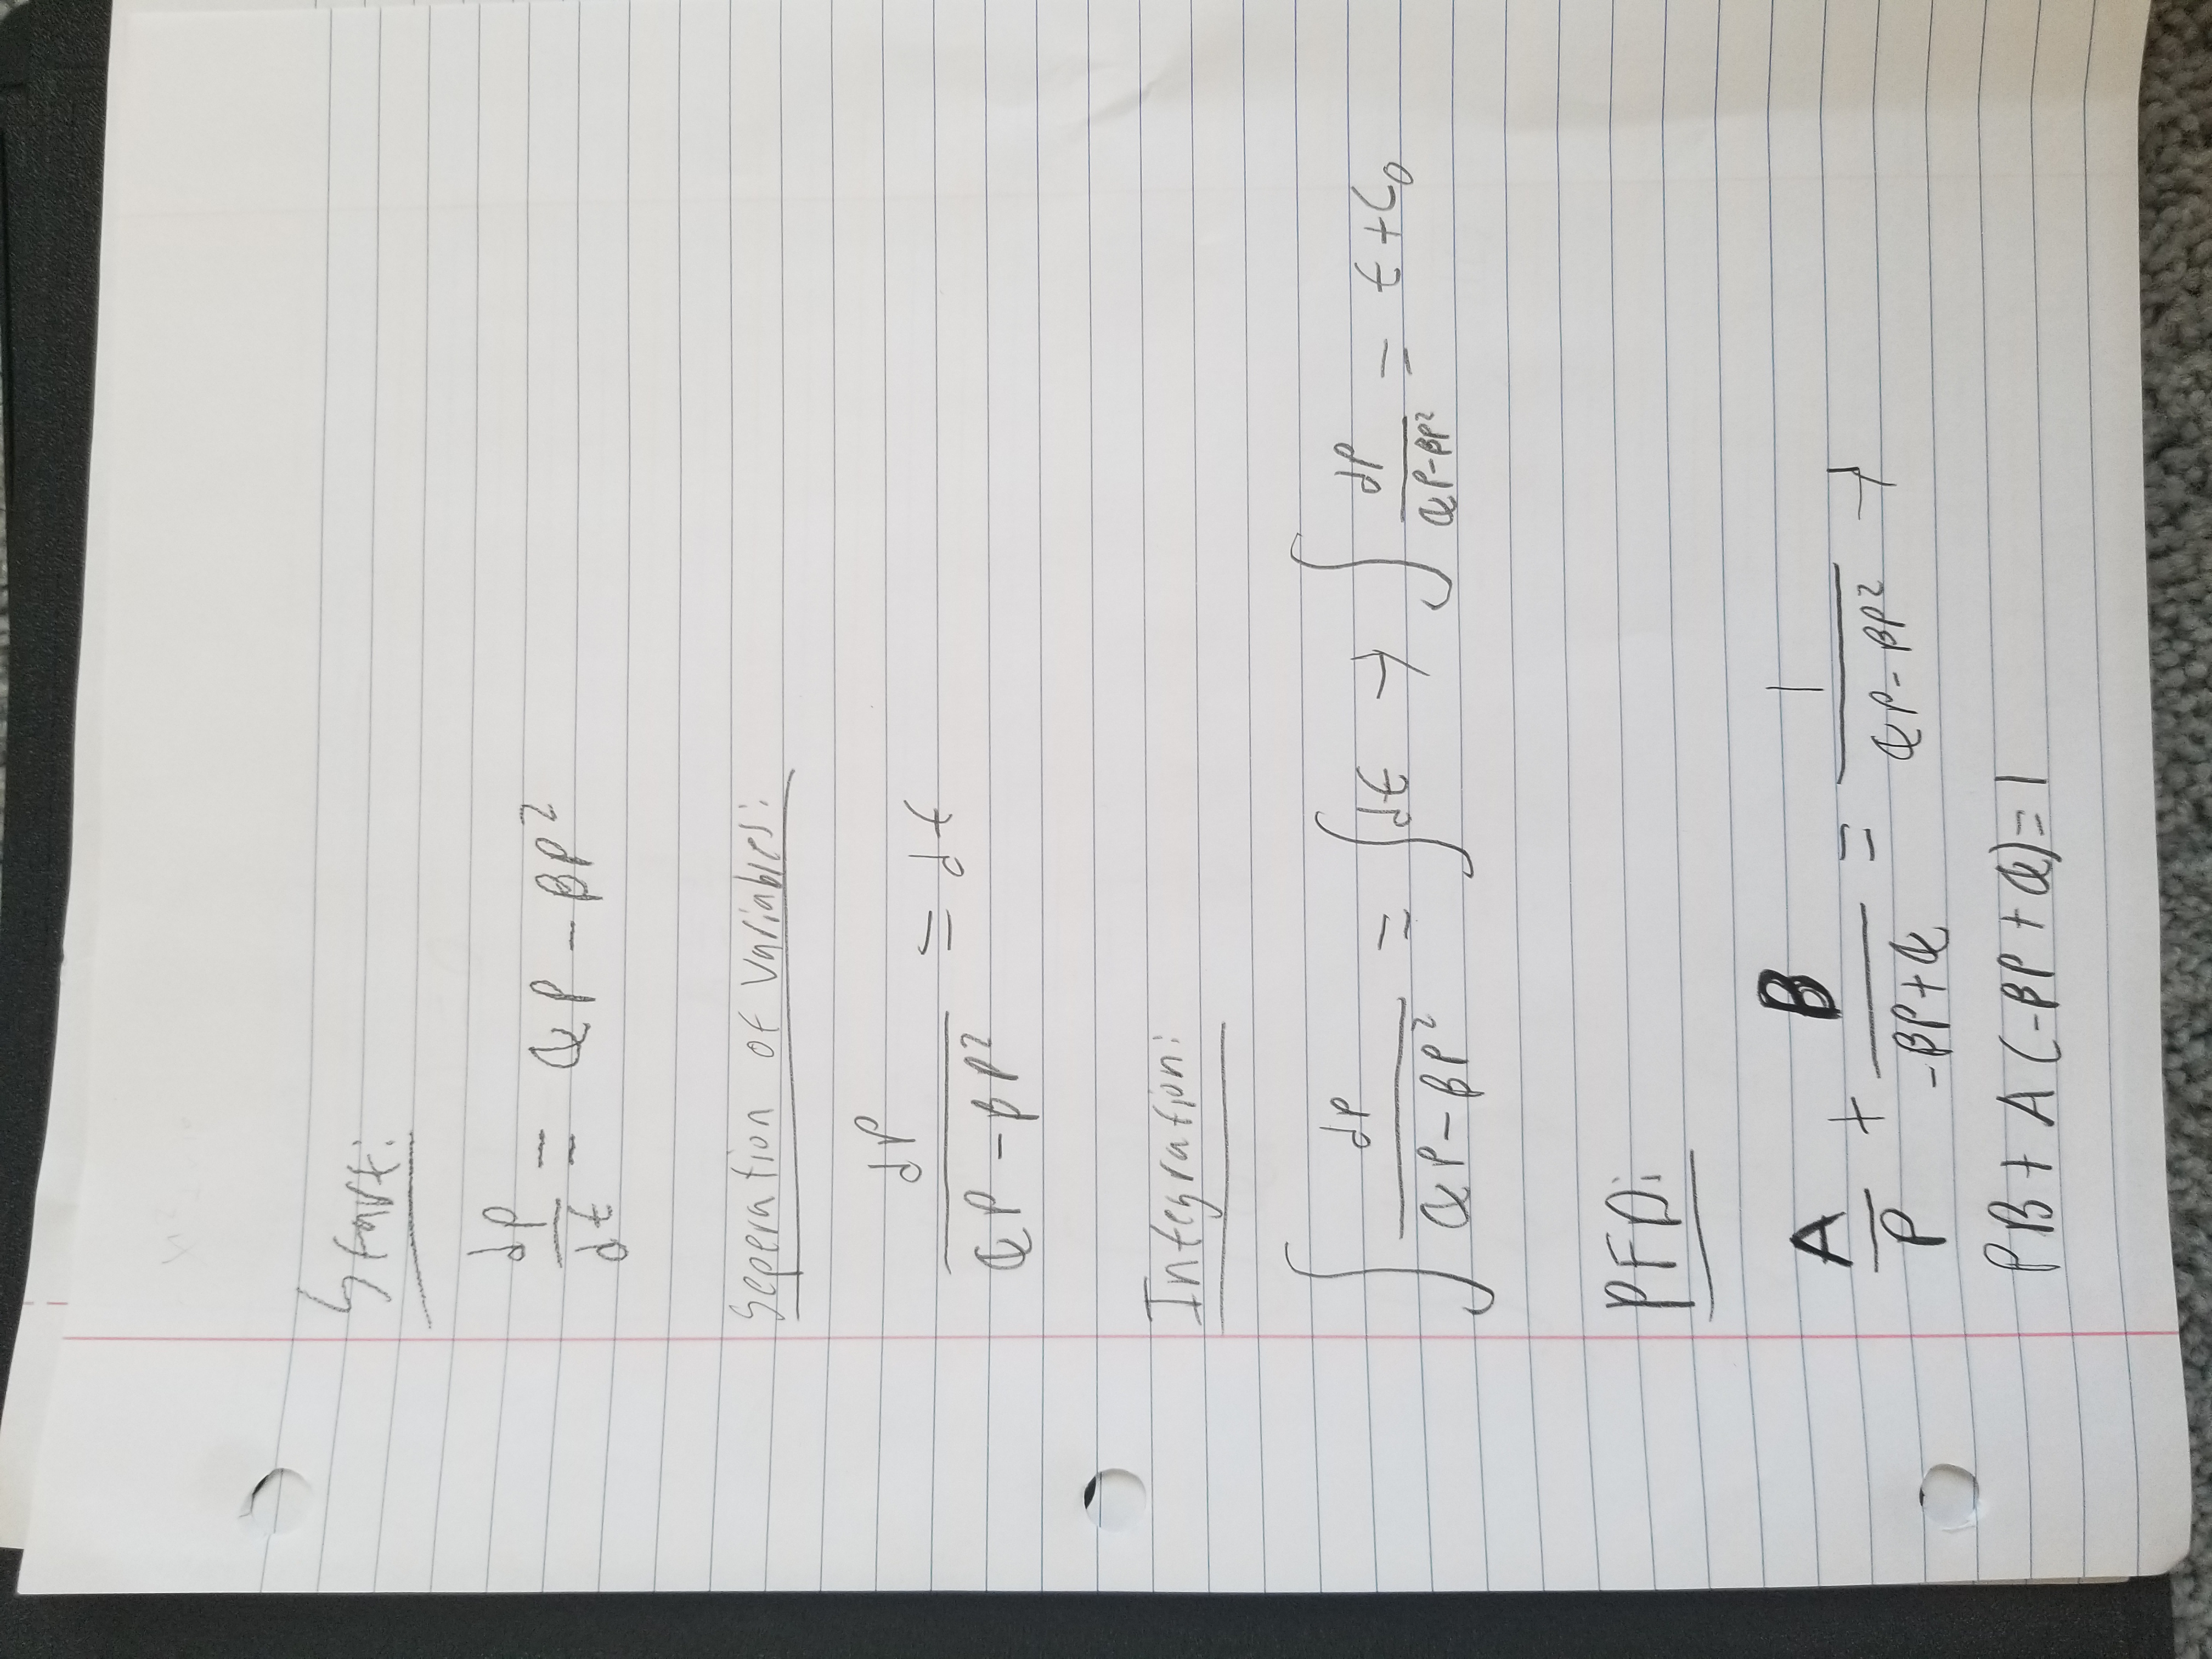 Start:
dp/dt = αP - βP²
Seperation of Variables:
dP/(αP - βP²) = dt
Integration:
∫ dP/(αP - βP²) = ∫dt → ∫ dP/(αP - βP²) = t + C₀
PFD:
A/P + B/(-βP + α) = 1/(αP - βP²) →
PB + A(-βP + α) = 1